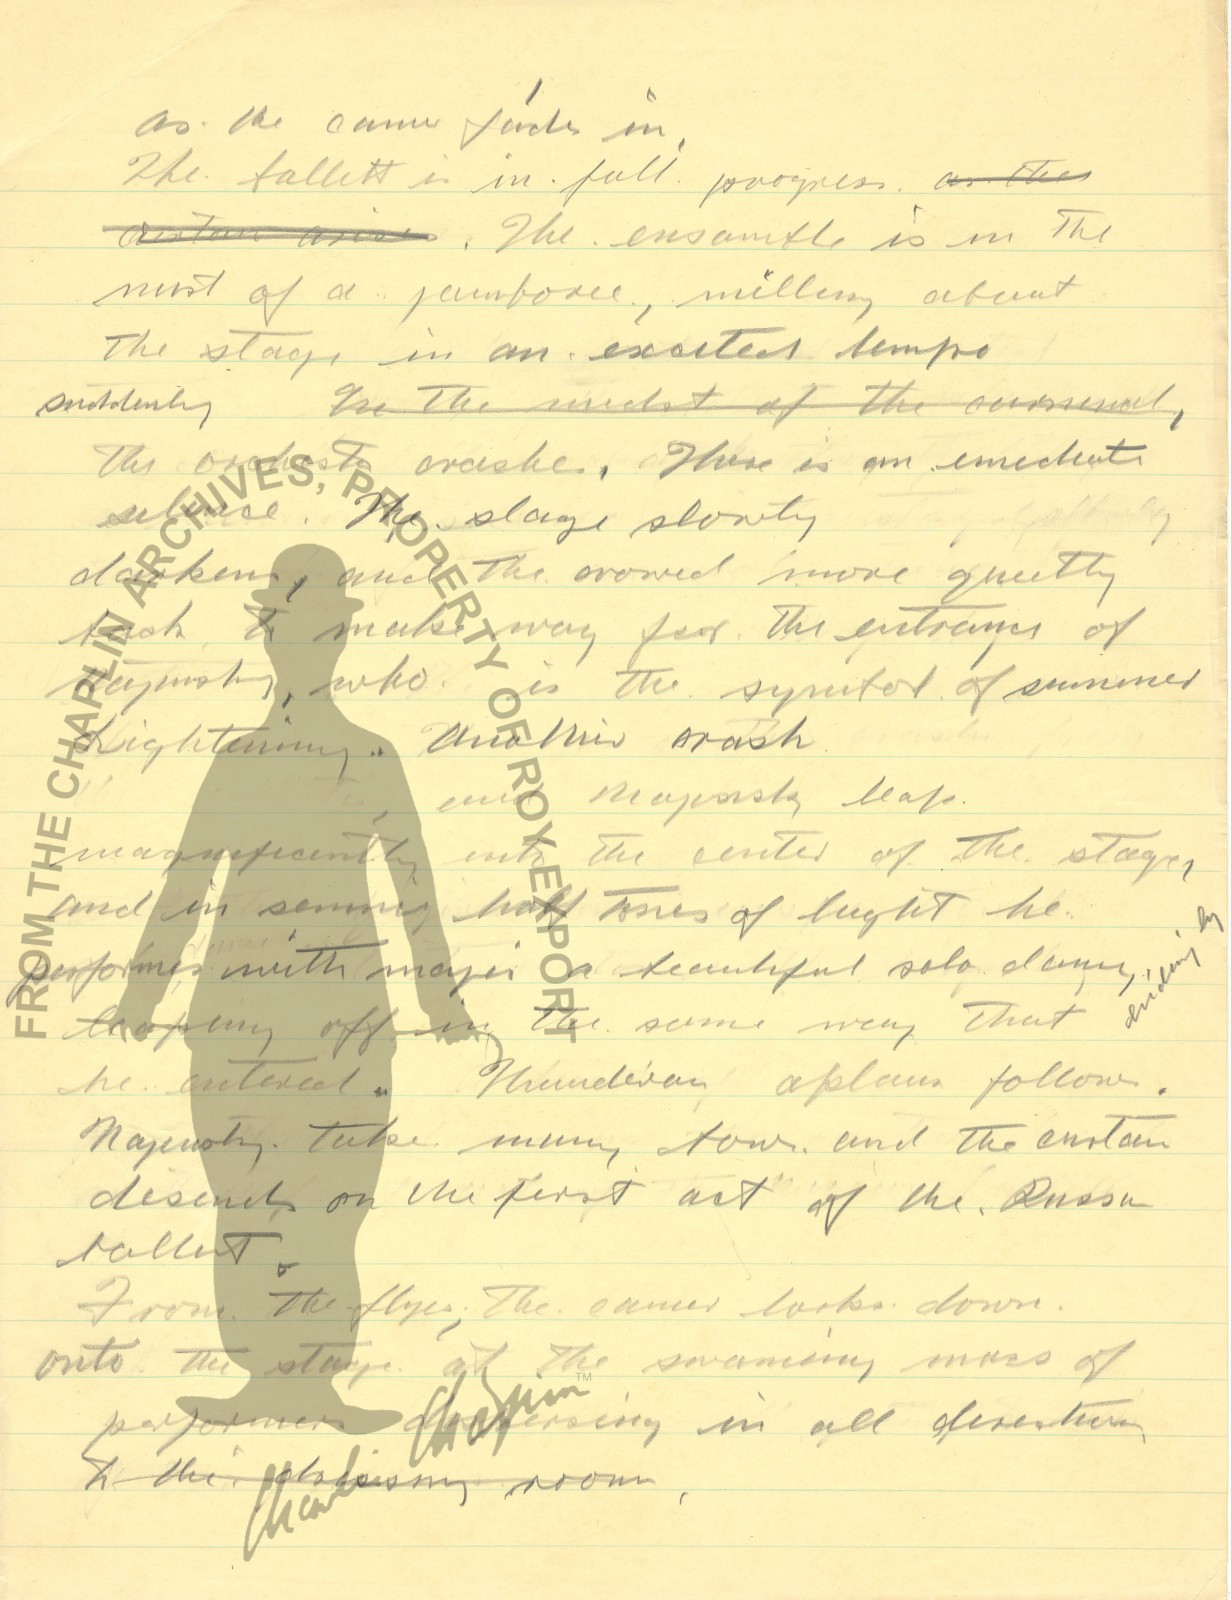 as the camer fades in,
The ballett is in full progress. as the
curtan arises. The ensamble is in the
mist of a jamboree, milling about
the stage in an excited tempo
suddenly In the midst of the
the orchestr crashes. There is an emediate
silence. The stage slowly
darkens, and the crowed move quietly
back to make way for the entrance of
who is the symbol of summer
Lightening. Another crash
and Najinsky leap.
magnificently into the center of the stage,
and in half tones of light he
performes with a beautiful solo dance,
ending by
leaping off in the same way that
he entered. Thunderous aplaus follows.
Najinsky take many bows. and the curtan
desends on the first act of the Russan
ballett.
From the flyes, the camer looks down
onto the stage at the swarming mass of
performers dispersing in all directions
to their dressing room,
FROM THE CHAPLIN ARCHIVES, PROPERTY OF ROY EXPORT
Charlie Chaplin ™